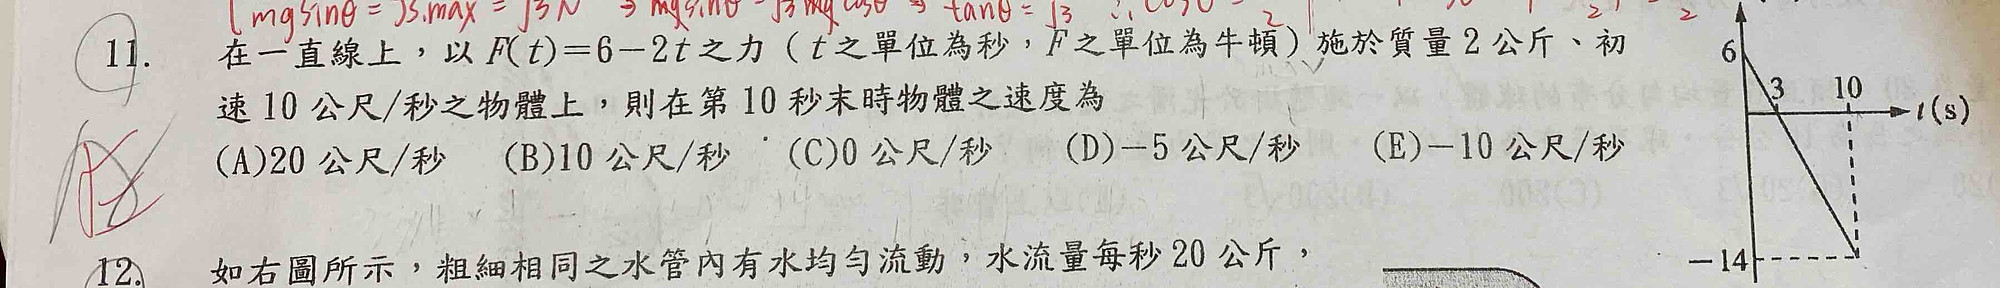 mgsinθ = fs.max = √3N ⇒ mgsinθ = √3mgcosθ ⇒ tanθ = √3 ∴ cosθ =
11. 在一直線上，以 F(t)=6-2t 之力（t 之單位為秒，F 之單位為牛頓）施於質量 2 公斤、初
速 10 公尺/秒之物體上，則在第 10 秒末時物體之速度為
(A)20 公尺/秒 (B)10 公尺/秒 (C)0 公尺/秒 (D)-5 公尺/秒 (E)-10 公尺/秒
6
3 10
t(s)
-14
12. 如右圖所示，粗細相同之水管內有水均勻流動，水流量每秒 20 公斤，